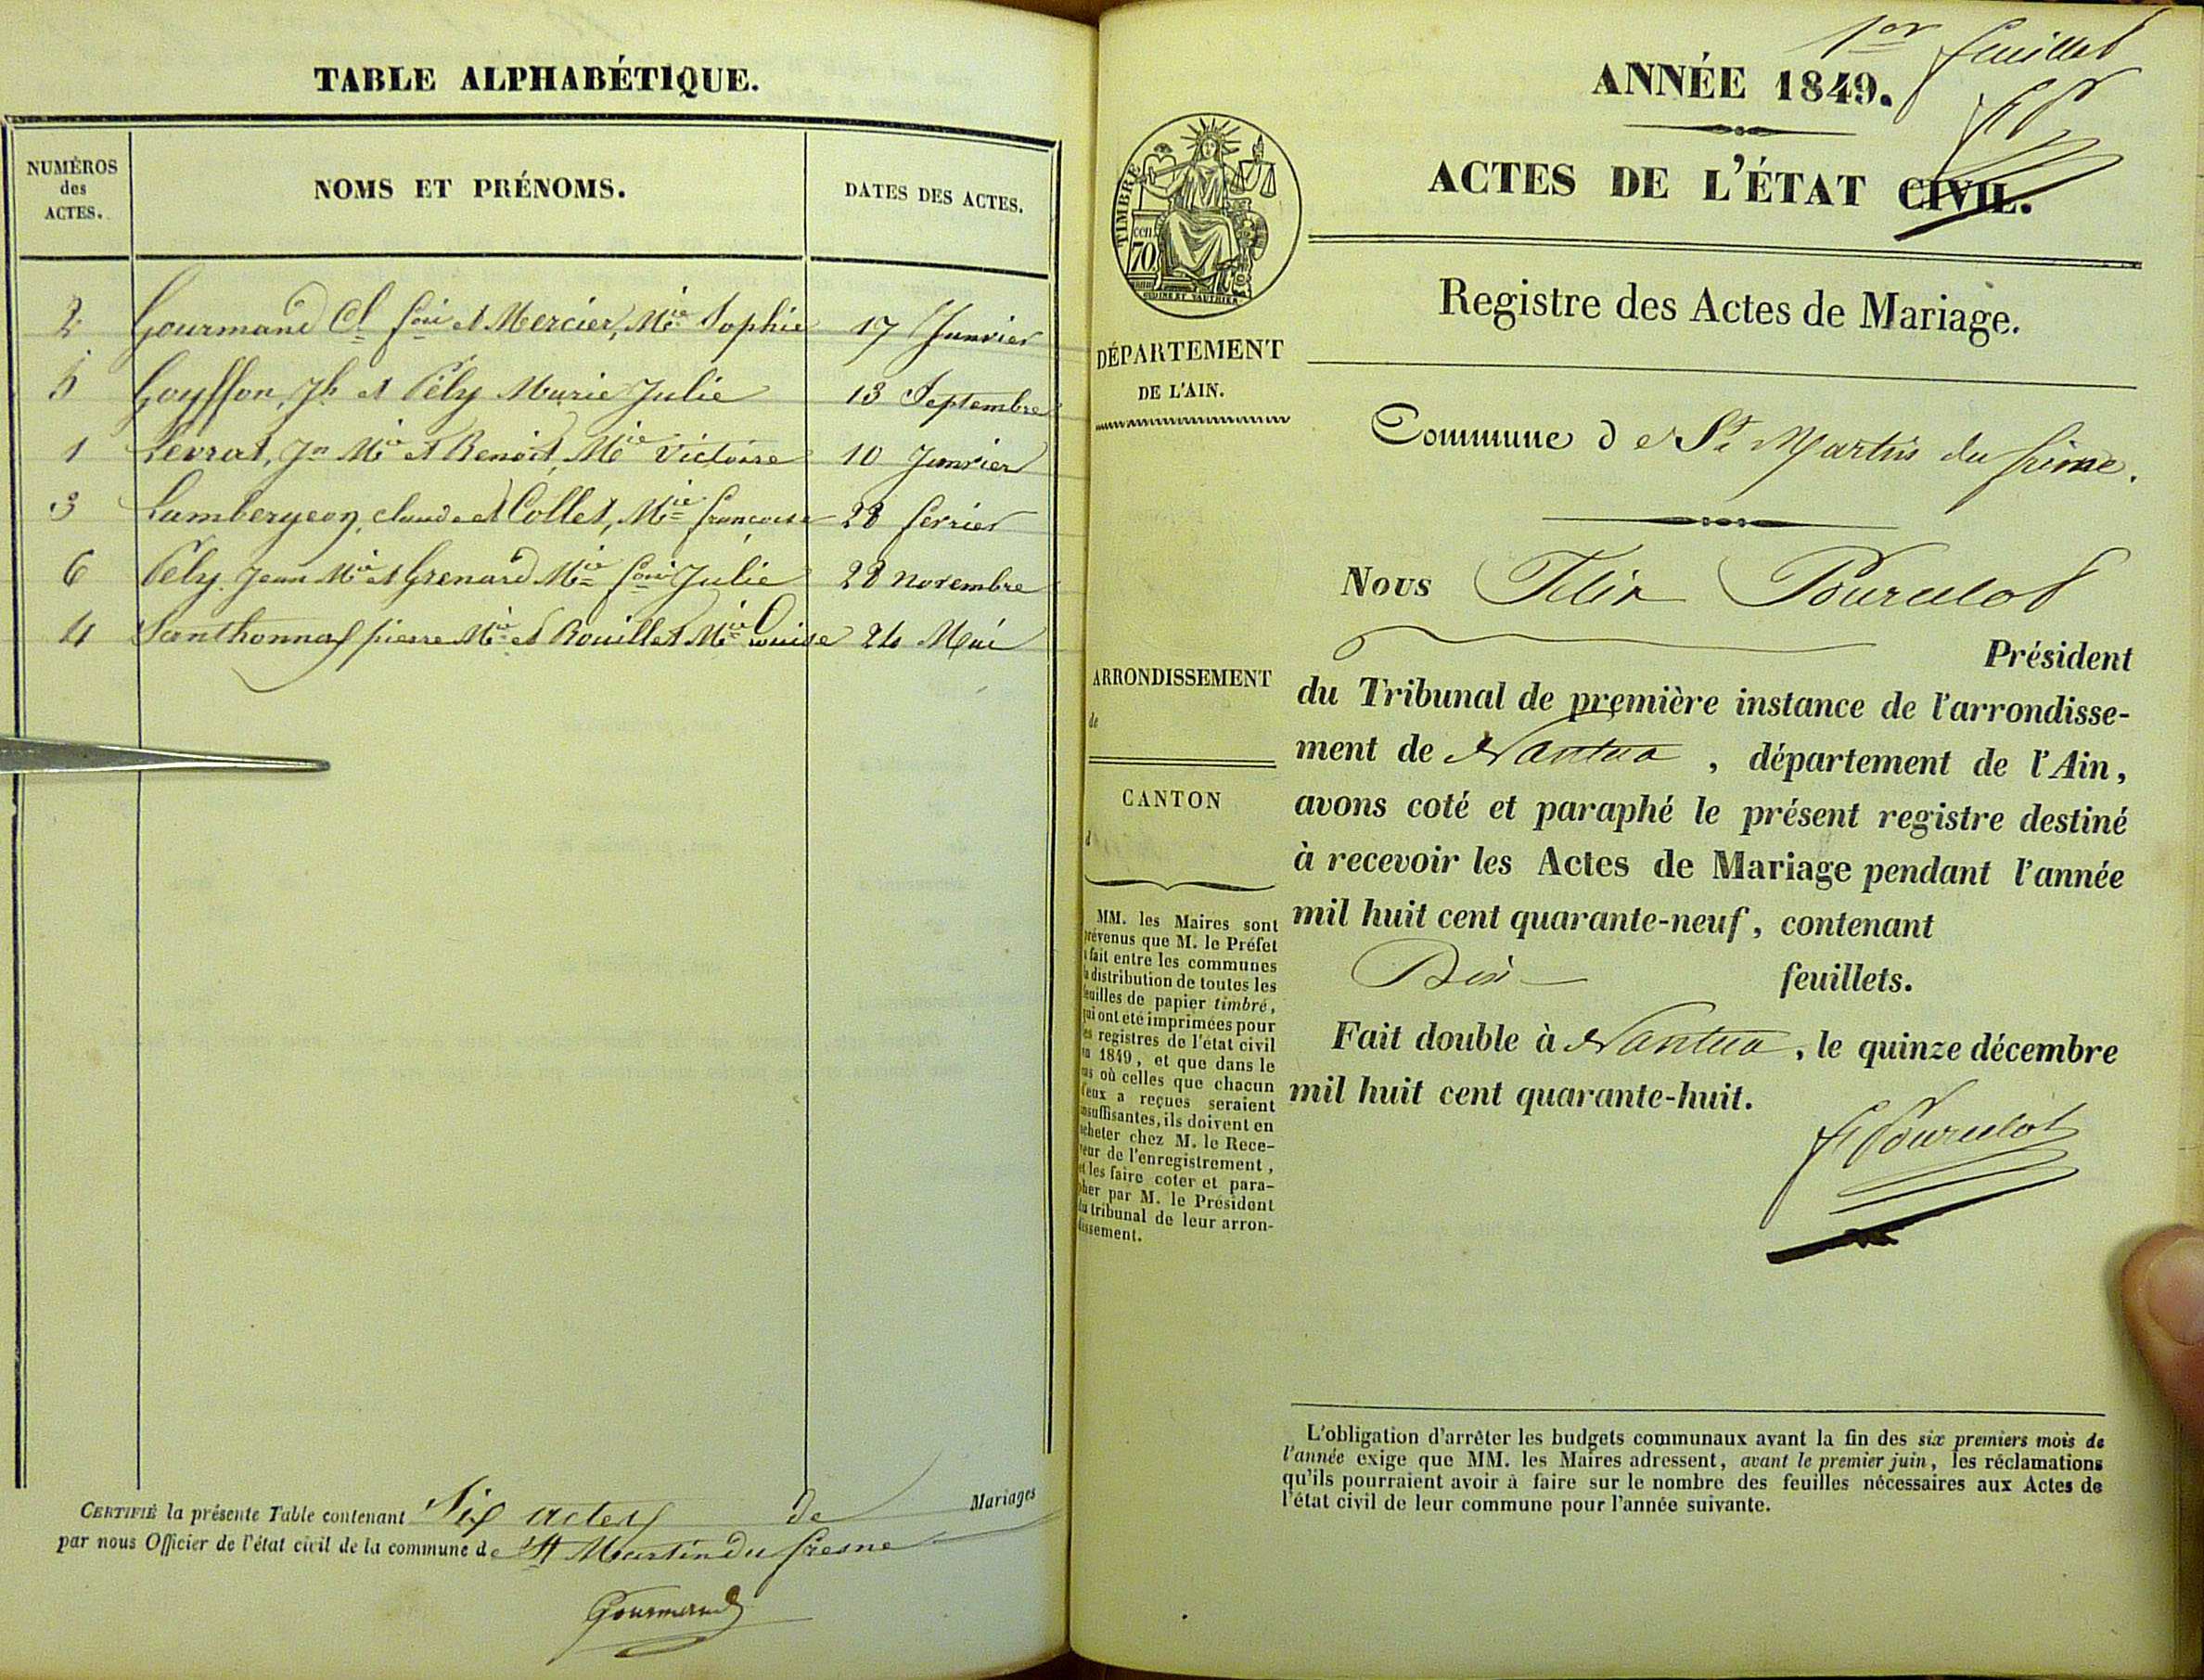 TABLE ALPHABÉTIQUE.
NUMÉROS des ACTES. NOMS ET PRÉNOMS. DATES DES ACTES.
2 Gourmand Cl. fois et Mercier, Mie Sophie 17 Janvier
5 Goyffon, Jh et Pély Marie Julie 13 Septembre
1 Levrat, Jn Mie et Benoit, Mie Victoire 10 Janvier
3 Lambergeon, claude et Collet, Mie françoise 28 février
6 Pély Jean Mie et Grenard Mie foise Julie 28 novembre
4 Santhonnax pierre Mie et Bouillet Mie Louise 24 Mai
CERTIFIÉ la présente Table contenant Six actes de Mariages
par nous Officier de l'état civil de la commune de St Martin du fresne
Gourmand
1er feuillet
ANNÉE 1849.
ACTES DE L'ÉTAT CIVIL.
TIMBRE
cen.
70
OUDINE ET VAUTHIER
Registre des Actes de Mariage.
DÉPARTEMENT
DE L'AIN.
Commune de St Martin du frêne.
Nous Félix Pourcelot
Président
ARRONDISSEMENT
de
CANTON
d
du Tribunal de première instance de l'arrondisse-
ment de Nantua, département de l'Ain,
avons coté et paraphé le présent registre destiné
à recevoir les Actes de Mariage pendant l'année
mil huit cent quarante-neuf, contenant
Dix feuillets.
Fait double à Nantua, le quinze décembre
mil huit cent quarante-huit.
F Pourcelot
MM. les Maires sont
prévenus que M. le Préfet
a fait entre les communes
la distribution de toutes les
feuilles de papier timbré,
qui ont été imprimées pour
les registres de l'état civil
en 1849, et que dans le
cas où celles que chacun
d'eux a reçues seraient
insuffisantes, ils doivent en
acheter chez M. le Rece-
veur de l'enregistrement,
et les faire coter et para-
pher par M. le Président
du tribunal de leur arron-
dissement.
L'obligation d'arrêter les budgets communaux avant la fin des six premiers mois de
l'année exige que MM. les Maires adressent, avant le premier juin, les réclamations
qu'ils pourraient avoir à faire sur le nombre des feuilles nécessaires aux Actes de
l'état civil de leur commune pour l'année suivante.